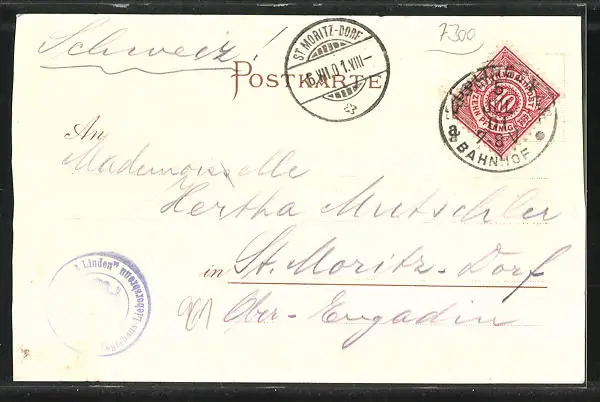 Schweiz!
7300
ST. MORITZ-DORF
6.VII.01.VIII-
POSTKARTE
ZEHN PFENNIG
10
BAHNHOF
An
Mademoiselle
Hertha Mutschler
in St. Moritz-Dorf
Ober-Engadin
Linden"